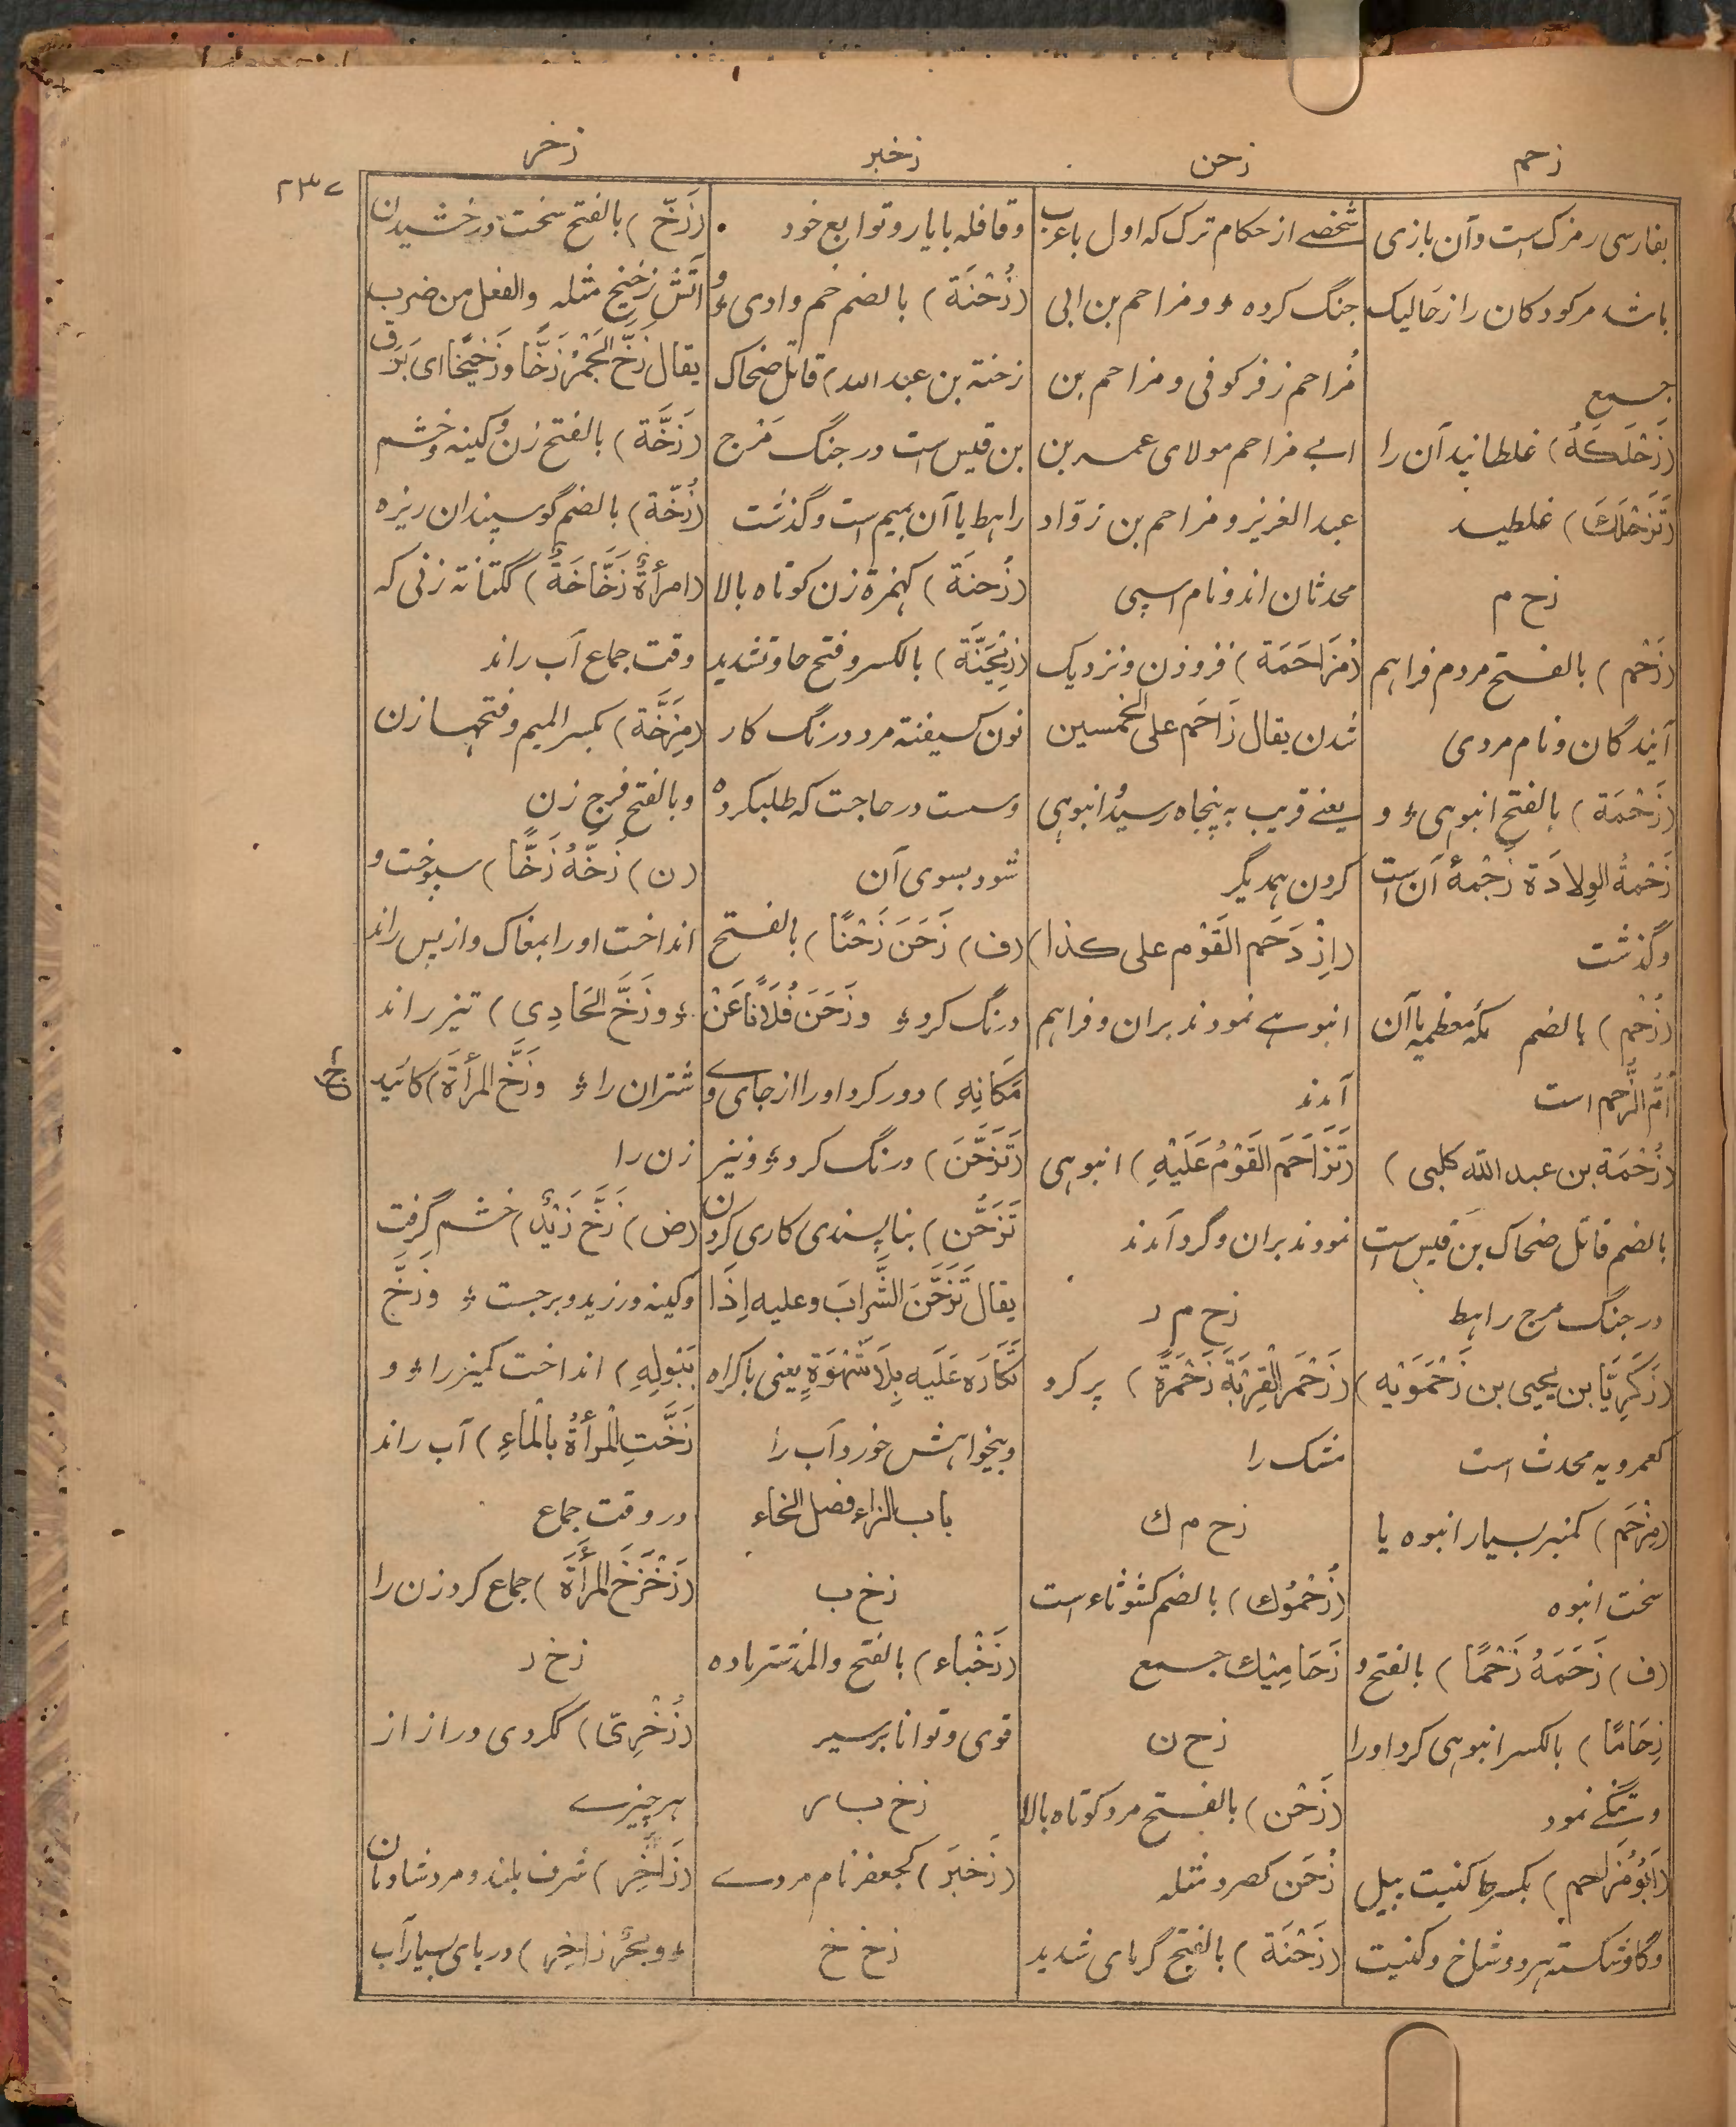 زحم
زحن
زخبر
زخر
۲۳۷
بفارسی رمزک است وآن بازی
باشد مرکودکان را زحالیک
جمع
(زَحْلَكَهُ) غلطانید آن را
(تَزَحْلَكَ) غلطید
زح م
(زَحْم) بالفتح مردم فراہم
آیندگان ونام مردی
(زَحْمَة) بالفتح انبوہی ؤ و
زَحْمةُ الوِلادَة زَحْمۀ آن است
وگذشت
(زُحْم) بالضم مکۂ معظمہ یا آن
اُمُّ الزُّحم است
(زُحْمَة بن عبد اللّٰه کلبی)
بالضم قاتل ضحاک بن قیس است
در جنگ مرج راہط
(زَكَرِيَّا بن یحیی بن زَحْمَوَيْه)
کعمرویہ محدث است
(مِزْحَم) کمنبر بسیار انبوہ یا
سخت انبوہ
(ف) زَحَمَهُ زَحْمًا) بالفتح و
زِحَامًا) بالکسر انبوہی کرد اورا
وتنگے نمود
(اَبُو مُزَاحم) بکسر حا کنیت پیل
وگاو شکستہ ہر دو شاخ وکنیت
شخصے از حکام ترک کہ اول باعرب
جنگ کردہ ؤ ومزاحم بن ابی
مُزاحم زفر کوفی ومزاحم بن
ابے مزاحم مولای عمر بن
عبد العزیز ومزاحم بن زوّاد
محدثان اند ونام اسپی
(مُزَاحَمَة) فزوزن ونزدیک
شدن یقال زَاحَم علی الخمسین
یعنے قریب بہ پنجاہ رسید ؤ انبوہی
کردن ہمدیگر
(اِزْدَحَم القَوْم علی کذا)
انبوہے نمودند بران وفراہم
آمدند
(تَزَاحَمَ القَوْمُ عَلَيْهِ) انبوہی
نمودند بران وگرد آمدند
زح م ر
(زَحْمَرَ القِرْبَةَ زَحْمَرَةً) پر کرد
مشک را
زح م ك
(زُحْمُوك) بالضم کشوثاء است
زَحَامِيْك جمع
زح ن
(زَحْن) بالفتح مرد کوتاہ بالا
زُحَن کصرد مثلہ
(زَحْنَة) بالفتح گرمای شدید
وقافلہ بابار وتوابع خود
(زُحْنَة) بالضم خم وادی ؤ و
زحنۃ بن عبد اللہ) قاتل ضحاک
بن قیس است در جنگ مَرْج
راہط یا آن بمیم است وگذشت
(زُحنَة) کہمزة زن کوتاہ بالا
(زِيَحَنَّة) بالکسر وفتح حا وتشدید
نون کسیفنہ مرد درنگ کار
وسست در حاجت کہ طلبکردہ
شود بسوی آن
(ف) زَحَنَ زَحْنًا) بالفتح
درنگ کرد ؤ وزَحَنَ فُلَانًا عَنْ
مَكَانِهِ) دور کرد اورا از جای وے
(تَزَحَّنَ) درنگ کرد ؤ ونیز
تَزَحُّن) بناپسندی کاری کردن
یقال تَزَحَّنَ الشَّرابَ وعلیه اِذَا
تَكَارَه عَلَيه بِلَا شَهْوَةٍ یعنی باکراہ
وبیخواہش خورد آب را
باب الزاء فصل الخاء
زخ ب
(زَخْباء) بالفتح والمد شتر مادہ
قوی وتوانا بر سیر
زخ ب ر
(زَخبَر) کجعفر نام مردے
زخ خ
(زَخّ) بالفتح سخت درخشیدن
آتش زَخِيْخ مثلہ والفعل من ضرب
یقال زَخَّ الجَمْرُ زَخًّا وزَخِيْخًا ای بَرَق
(زَخَّة) بالفتح زن ؤ وکینہ وخشم
(زُخّة) بالضم گوسپندان ریزہ
(امرأةٌ زَخَّاخَةٌ) ککتانۃ زنی کہ
وقت جماع آب راند
(مِزَخَّة) بکسر المیم وفتحہا زن
وبالفتح فرج زن
(ن) زَخَّهُ زَخًّا) سپوخت و
انداخت اورا بمغاک واز پس راند
ؤ وزَخَّ الحَادِي) تیز راند
شتران را ؤ وزَخَّ المرأَةَ) کائید
زن را
(ض) زَخَّ زَيْدٌ) خشم گرفت
وکینہ ورزید وبرجست ؤ وزَخَّ
بِبَوْلِهِ) انداخت کمیز را ؤ و
زَخَّتِ المَرأةُ بالْماءِ) آب راند
در وقت جماع
(زَخْزَخَ المرأَةَ) جماع کرد زن را
زخ ر
(زُخْرِيّ) ککردی دراز از
ہر چیزے
(زَاخِر) شرف بلند ومرد شادمان
ؤ وبحرٌ زاخِر) دریای بسیار آب